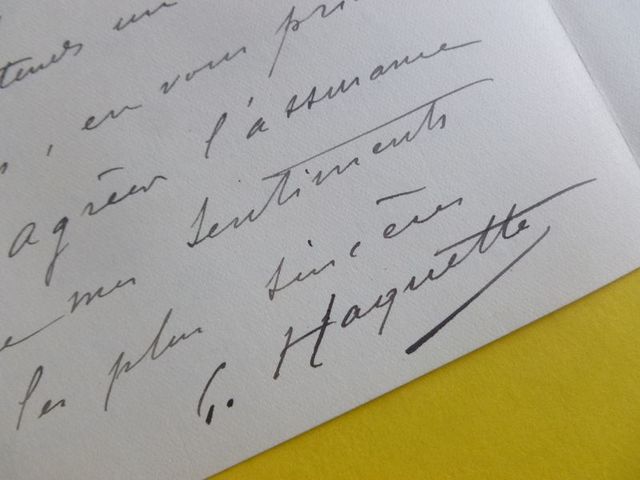 un
, en vous
agréer l'assurance
mes sentiments
les plus sincères
G. Haquette